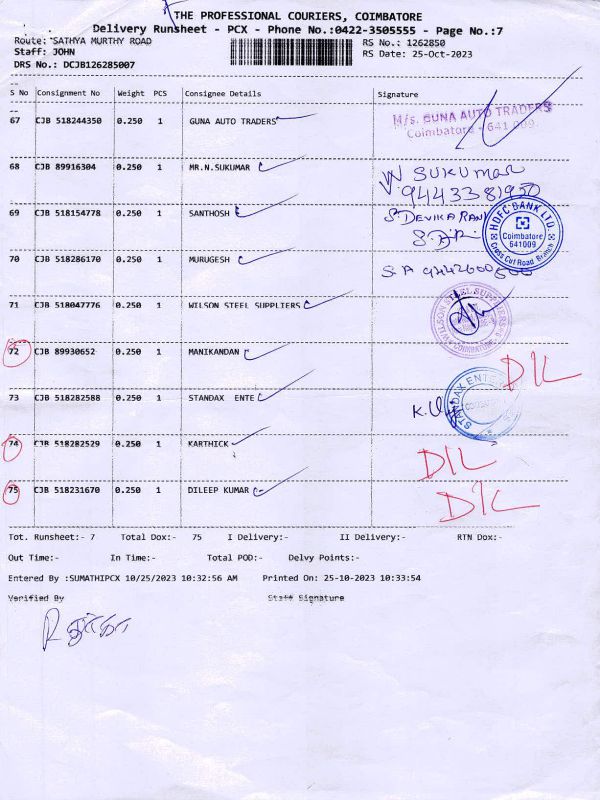 THE PROFESSIONAL COURIERS, COIMBATORE
Delivery Runsheet - PCX - Phone No.:0422-3505555 - Page No.:7
Route: SATHYA MURTHY ROAD RS No.: 1262850
Staff: JOHN RS Date: 25-Oct-2023
DRS No.: DCJB126285007
S No Consignment No Weight PCS Consignee Details Signature
67 CJB 518244350 0.250 1 GUNA AUTO TRADERS M/s. GUNA AUTO TRADERS
Coimbatore - 641 009.
68 CJB 89916304 0.250 1 MR.N.SUKUMAR N SUKUMAR
9443381950
69 CJB 518154778 0.250 1 SANTHOSH S. DEVIKA RANI
HDFC BANK LTD.
Coimbatore
641009
Cross Cut Road Branch
70 CJB 518286170 0.250 1 MURUGESH
71 CJB 518047776 0.250 1 WILSON STEEL SUPPLIERS WILSON STEEL SUPPLIERS
COIMBATORE
72 CJB 89930652 0.250 1 MANIKANDAN DIL
73 CJB 518282588 0.250 1 STANDAX ENTE STANDAX ENTE
74 CJB 518282529 0.250 1 KARTHICK DIL
75 CJB 518231670 0.250 1 DILEEP KUMAR DIL
Tot. Runsheet:- 7 Total Dox:- 75 I Delivery:- II Delivery:- RTN Dox:-
Out Time:- In Time:- Total POD:- Delvy Points:-
Entered By :SUMATHIPCX 10/25/2023 10:32:56 AM Printed On: 25-10-2023 10:33:54
Verified By Staff Signature